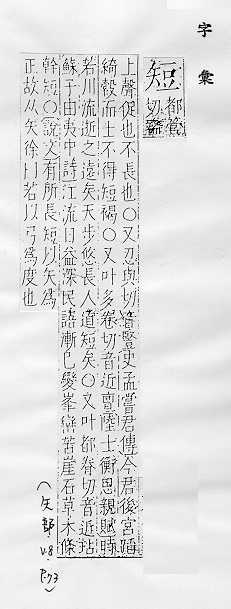 字彙
短
都管
切端
上聲促也不長也〇又忍與切音豎史孟嘗君傳今君後宮蹈
綺縠而士不得短褐〇又叶多卷切音近亶陸士衡思親賦時
若川流逝之遠矣天步悠長人道短矣〇又叶都眷切音近玷
蘇子由夷中詩江流日益深民語漸已變峯巒苦崖石草木條
幹短〇說文有所長短以矢爲
正故从矢徐曰若以弓爲度也
(矢部, V.8, P.73)